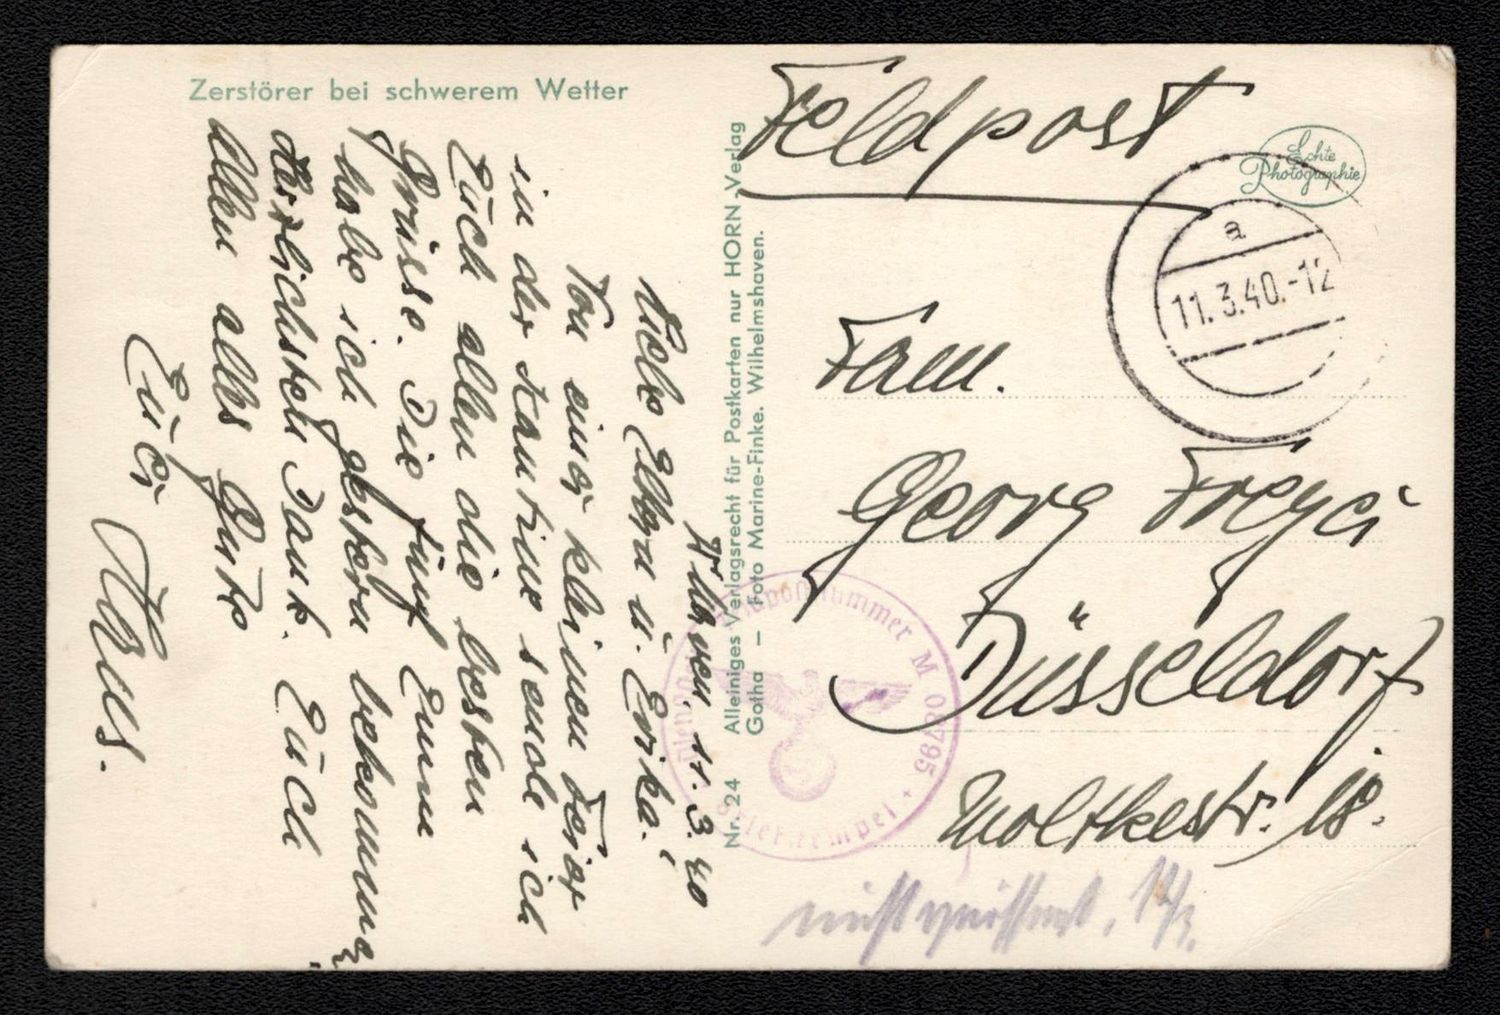 Zerstörer bei schwerem Wetter
W'Haven. 11. 3. 40
Liebe Elkya u. Erika!
Von einer kleinen Feier
in der Kantine sende ich
Euch allen die besten
Grüsse. Die fünf Emm
habe ich gestern bekommen,
Herzlichsten Dank. Euch
allen alles Gute
Euer Hans.
Nr. 24 Alleiniges Verlagsrecht für Postkarten nur HORN-Verlag
Gotha — Foto Marine-Finke. Wilhelmshaven.
Feldpost
Echte
Photographie
a
11.3.40.-12
Fam.
Georg Freyci
Düsseldorf
Moltkestr. 18.
Feldpostnummer M 08795
Briefstempel